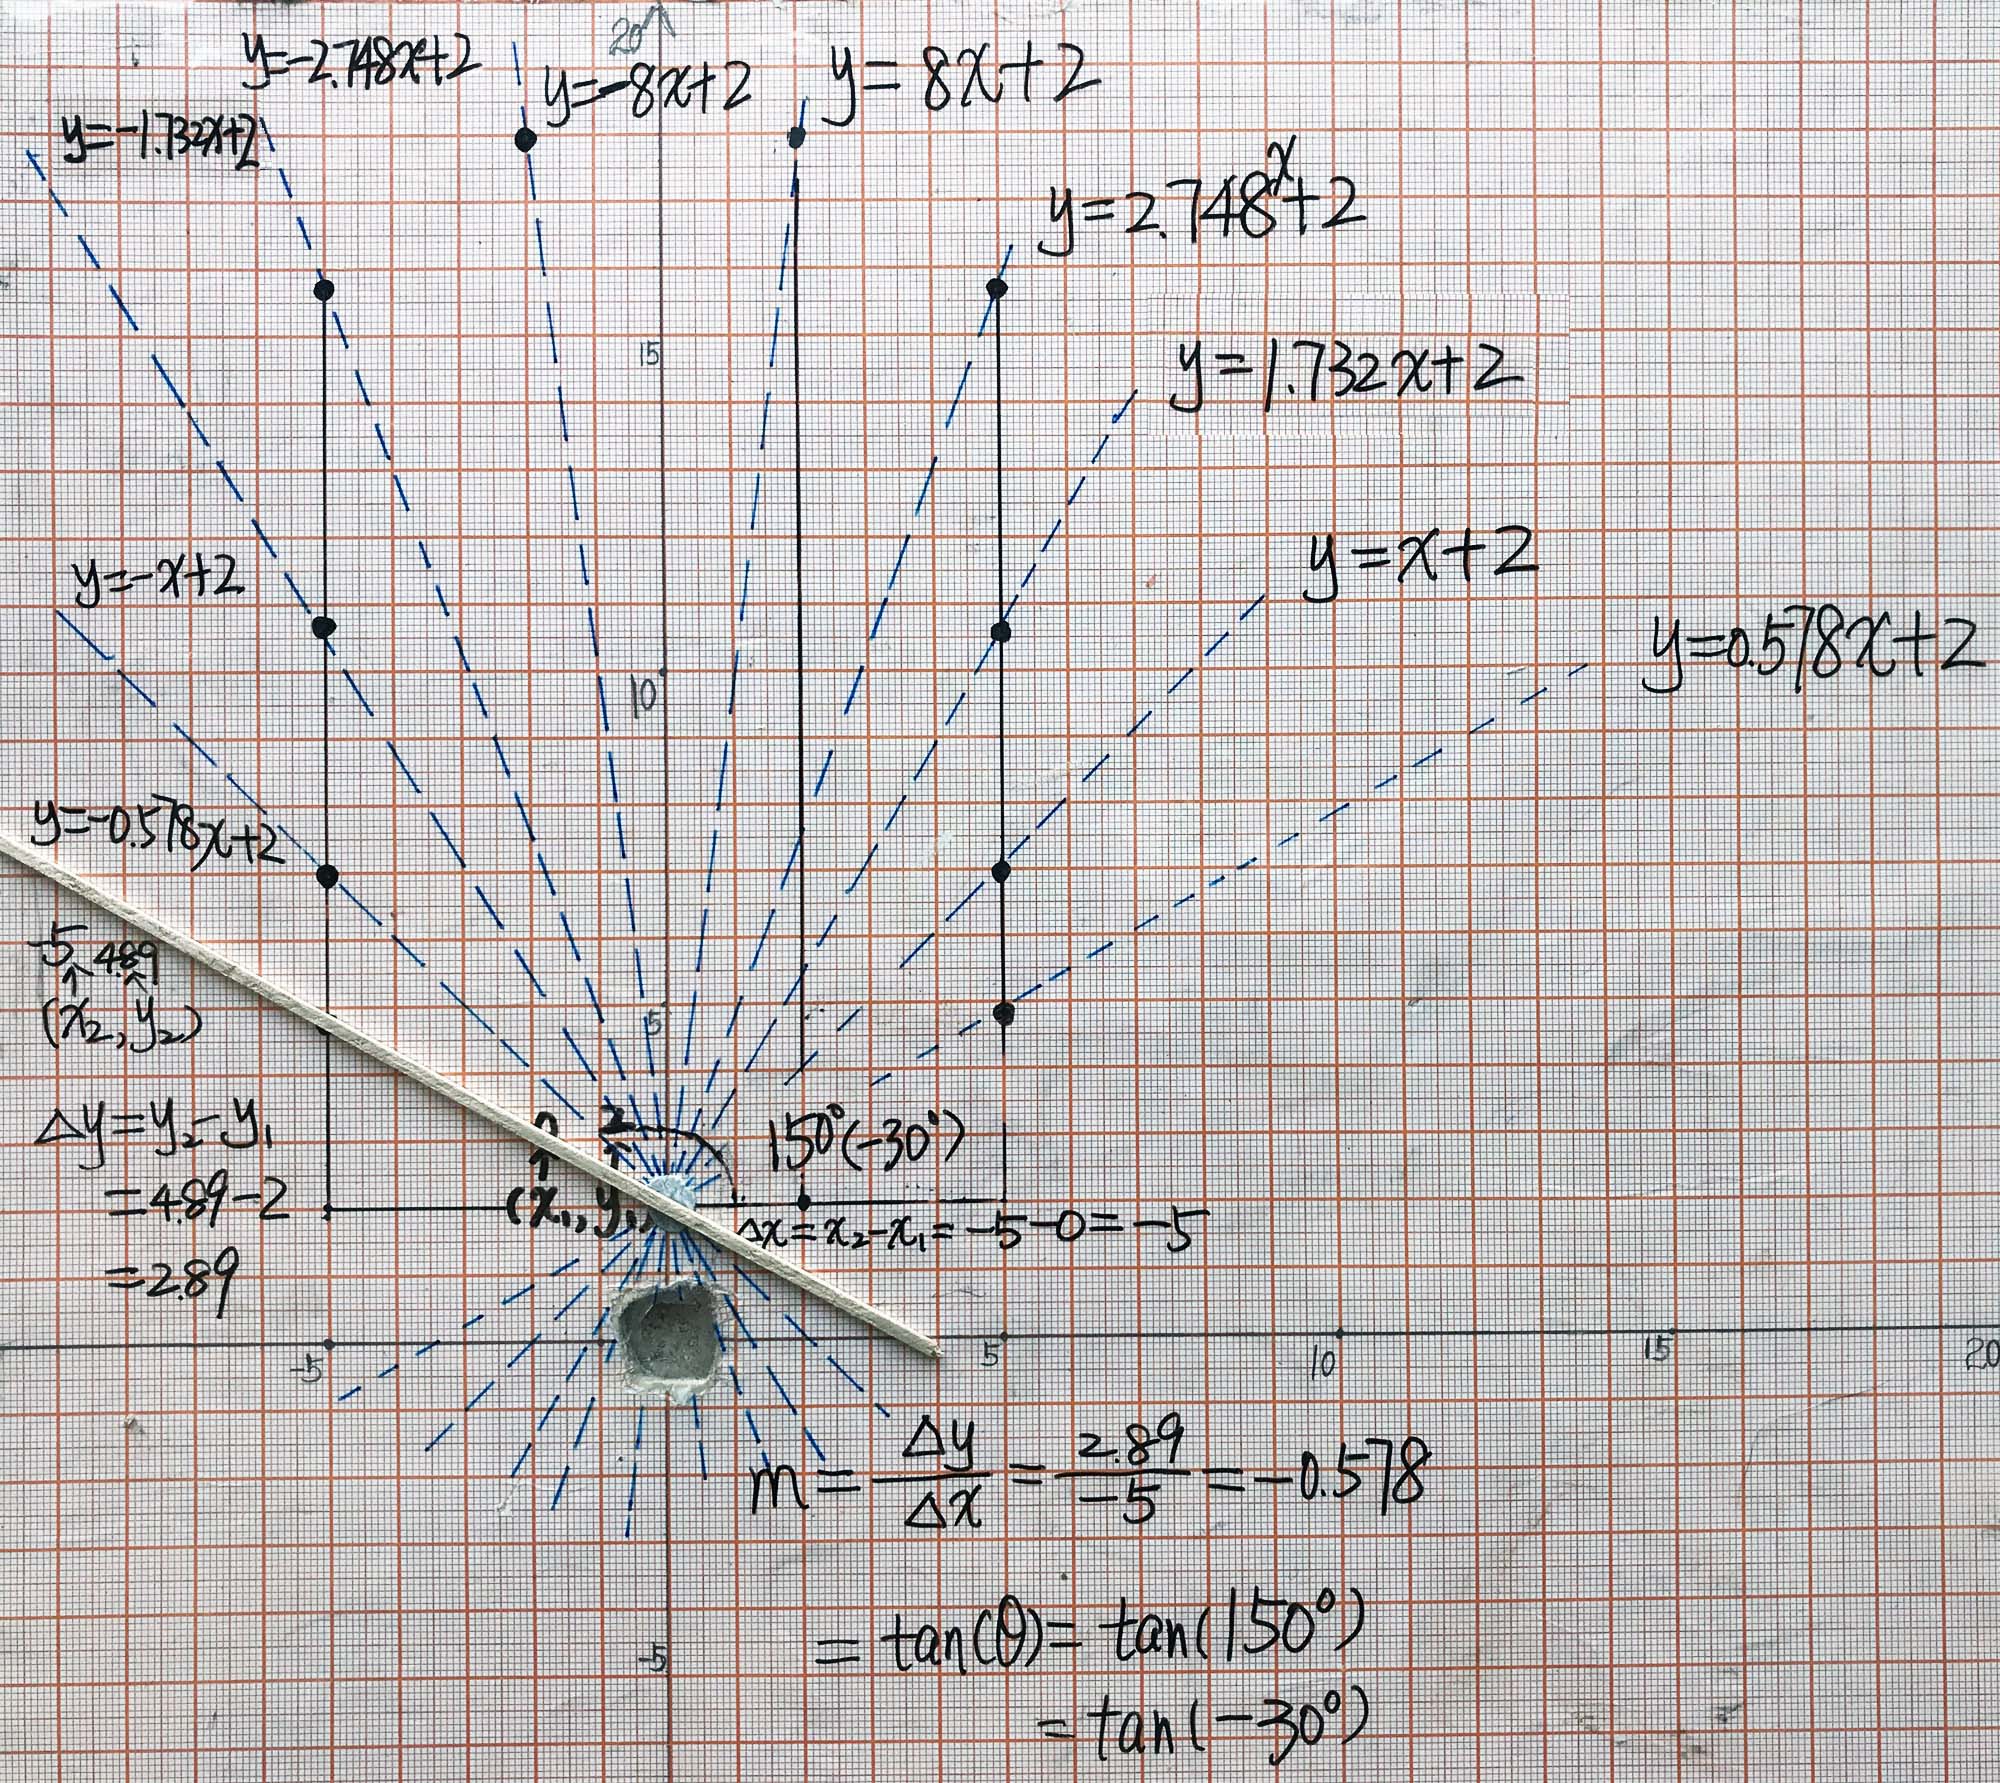 20
y=-2.748x+2
y=-8x+2
y=8x+2
y=-1.732x+2
y=2.748x+2
15
y=1.732x+2
y=x+2
y=-x+2
y=0.578x+2
10
y=-0.578x+2
-5 4.89
↑ ↖
(x₂, y₂)
5
Δy=y₂-y₁
=4.89-2
=2.89
0 2
↑ ↑
(x₁, y₁)
150°(-30°)
Δx=x₂-x₁=-5-0=-5
-5 5 10 15 20
m = Δy/Δx = 2.89/-5 = -0.578
= tan(θ)= tan(150°)
= tan(-30°)
-5